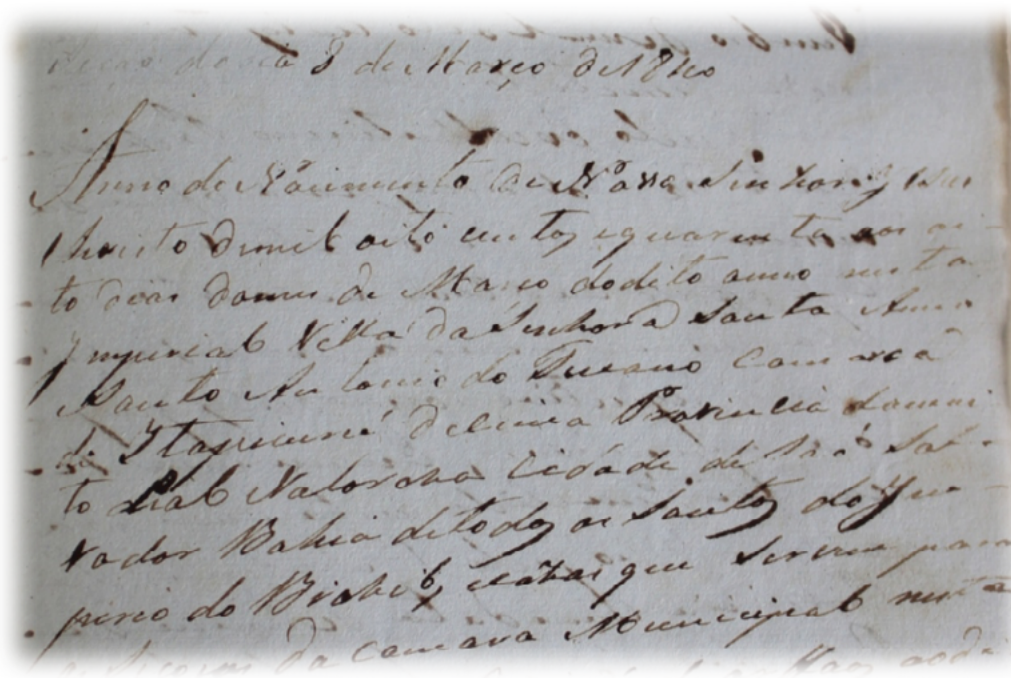 dia 8 de Março de 1840
Anno do Nacimento de Nosso Senhor Jesus
Christo de mil oito centos e quarenta aos oi-
to dias do mes de Março do dito anno nesta
Imperial Villa da Senhora Santa Anna
Santo Antonio do Tucano Comarca
de Itapicurú de cima Provincia da mui
to Lial Valoroza Cidade de São Sal-
vador Bahia de todos os Santos do Im-
perio do Brazil, e cazas que servem para
da Camara Municipal nesta